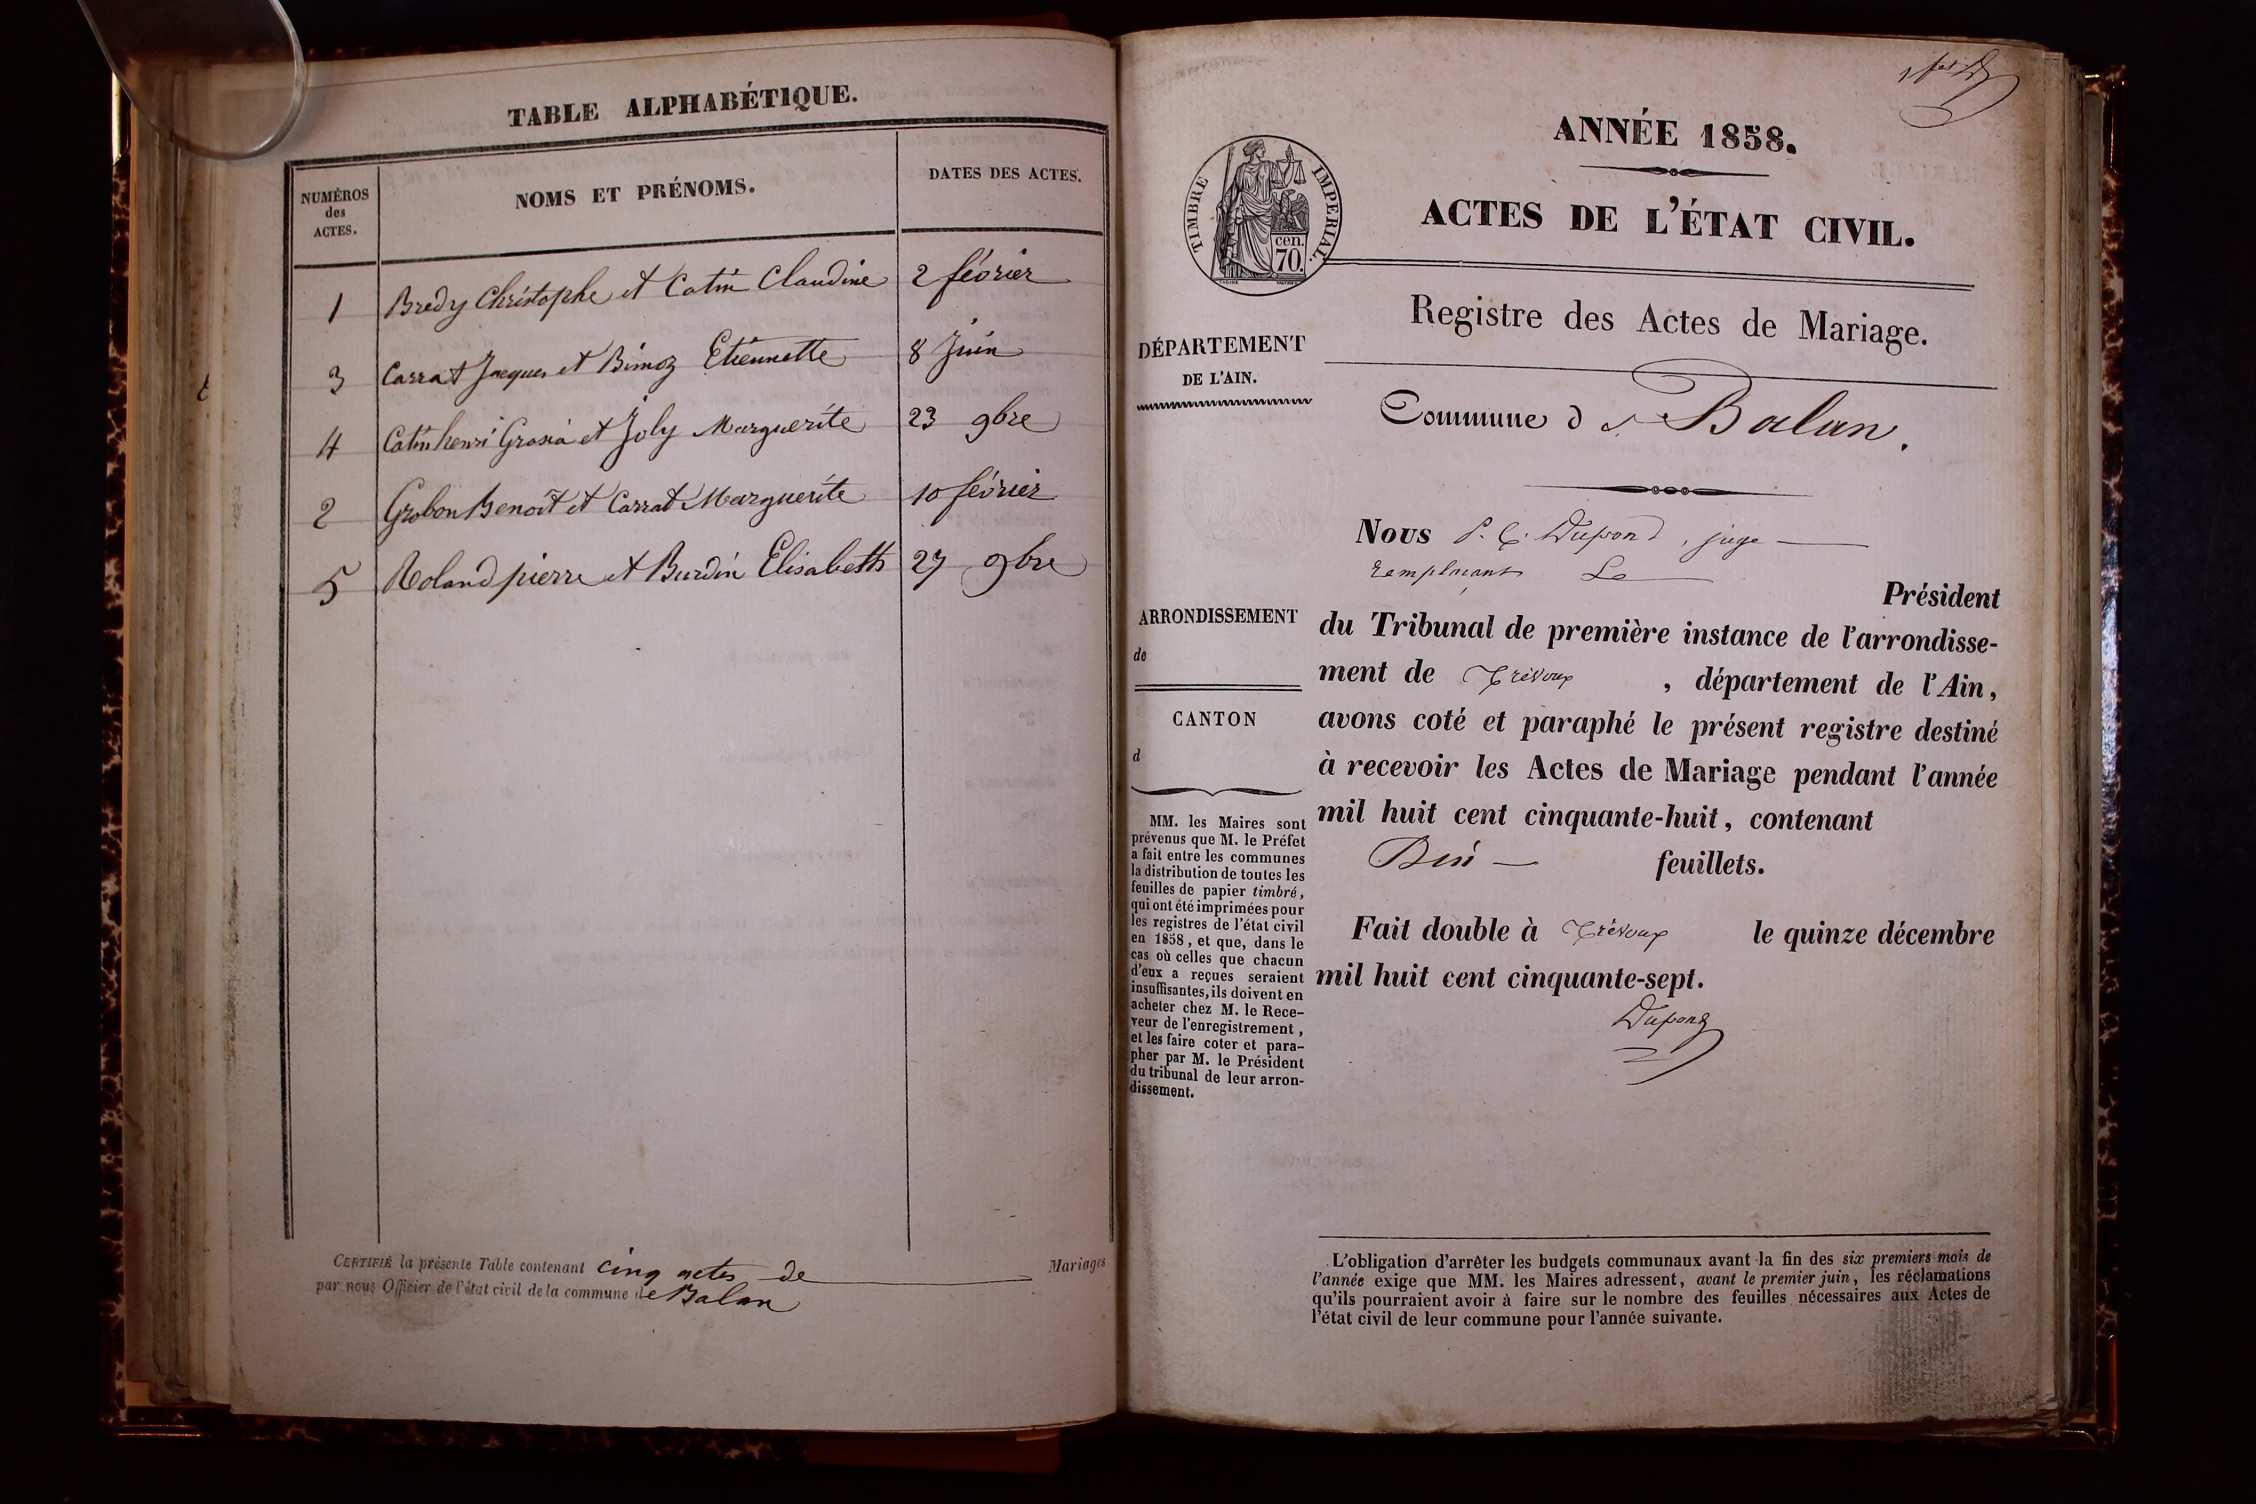 TABLE ALPHABÉTIQUE.
NUMÉROS
des
ACTES.
NOMS ET PRÉNOMS.
DATES DES ACTES.
1 Bredy Christophe et Catin Claudine 2 février
3 Carrat Jacques et Bimoz Etiennette 8 Juin
4 Catin henri et Joly Marguerite 23 9bre
2 Grobon Benoît et Carrat Marguerite 10 février
5 Roland pierre et Burdin Elisabeth 27 9bre
CERTIFIÉ la présente Table contenant cinq actes de Mariages
par nous Officier de l'état civil de la commune de Balan
ANNÉE 1858.
ACTES DE L'ÉTAT CIVIL.
TIMBRE IMPERIAL.
cen.
70.
Registre des Actes de Mariage.
DÉPARTEMENT
DE L'AIN.
Commune de Balan.
ARRONDISSEMENT
de
CANTON
d
MM. les Maires sont
prévenus que M. le Préfet
a fait entre les communes
la distribution de toutes les
feuilles de papier timbré,
qui ont été imprimées pour
les registres de l'état civil
en 1858, et que, dans le
cas où celles que chacun
d'eux a reçues seraient
insuffisantes, ils doivent en
acheter chez M. le Rece-
veur de l'enregistrement,
et les faire coter et para-
pher par M. le Président
du tribunal de leur arron-
dissement.
Nous P. C. Dupond, juge
remplaçant Le
Président
du Tribunal de première instance de l'arrondisse-
ment de Trévoux, département de l'Ain,
avons coté et paraphé le présent registre destiné
à recevoir les Actes de Mariage pendant l'année
mil huit cent cinquante-huit, contenant
feuillets.
Fait double à Trévoux le quinze décembre
mil huit cent cinquante-sept.
Dupond
L'obligation d'arrêter les budgets communaux avant la fin des six premiers mois de
l'année exige que MM. les Maires adressent, avant le premier juin, les réclamations
qu'ils pourraient avoir à faire sur le nombre des feuilles nécessaires aux Actes de
l'état civil de leur commune pour l'année suivante.